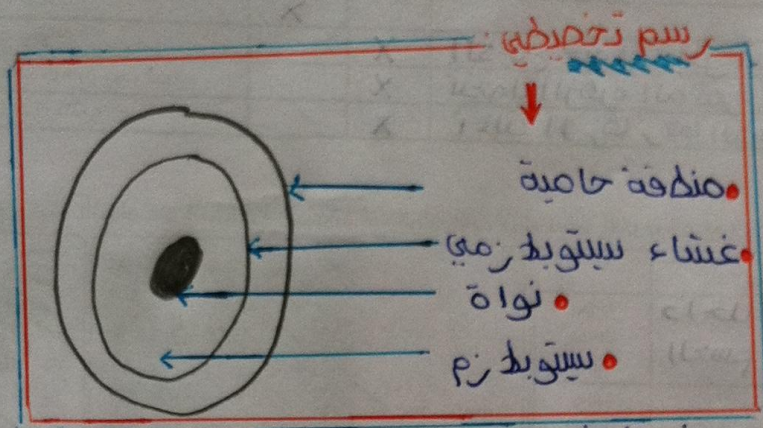 رسم تخطيطي
منطقة حامية
غشاء سيتوبلازمي
نواة
سيتوبلازم